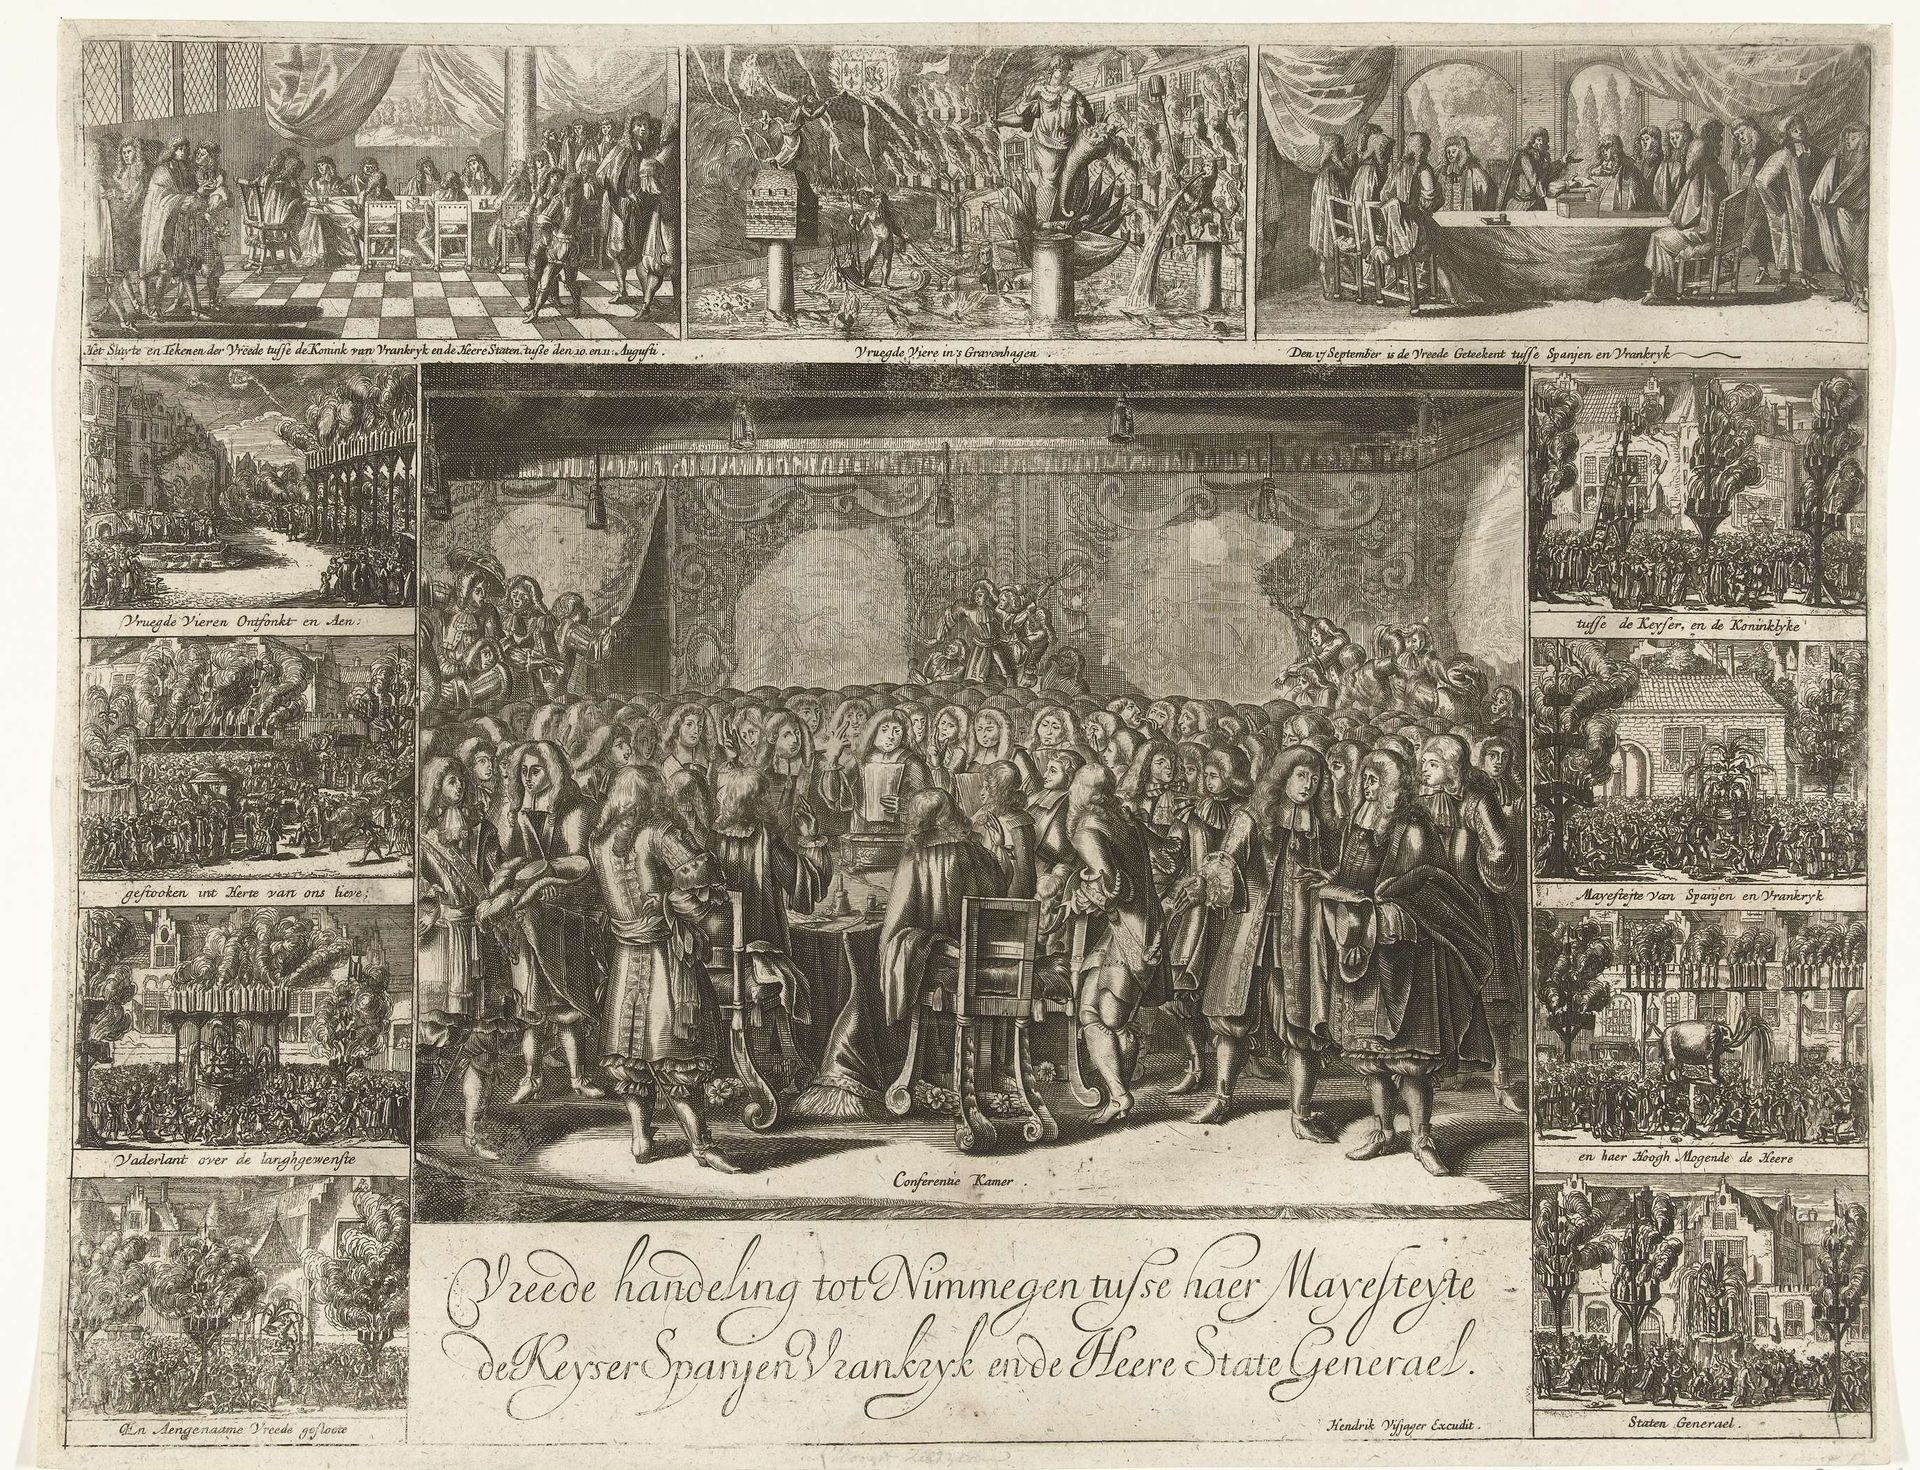 Het Sluyte en Tekenen der Vreede tusse de Konink van Vrankryk en de Heere Staten, tusse den 10. en 11. Augusti.
Vruegde Viere in's Gravenhagen.
Den 17 September is de Vreede Geteekent tusse Spanjen en Vrankryk
Vruegde Vieren Ontfonkt en Aen:
gestooken int Herte van ons lieve;
Vaderlant over de langhgewenste
En Aengenaame Vreede gesloote
tusse de Keyser, en de Koninklyke
Mayesteste van Spanjen en Vrankryk
en haer Hoogh Mogende de Heere
Staten Generael.
Conferentie Kamer.
Vreede handeling tot Nimmegen tusse haer Mayesteyte
de Keyser Spanjen Vrankryk en de Heere State Generael.
Hendrik Visjager Excudit.